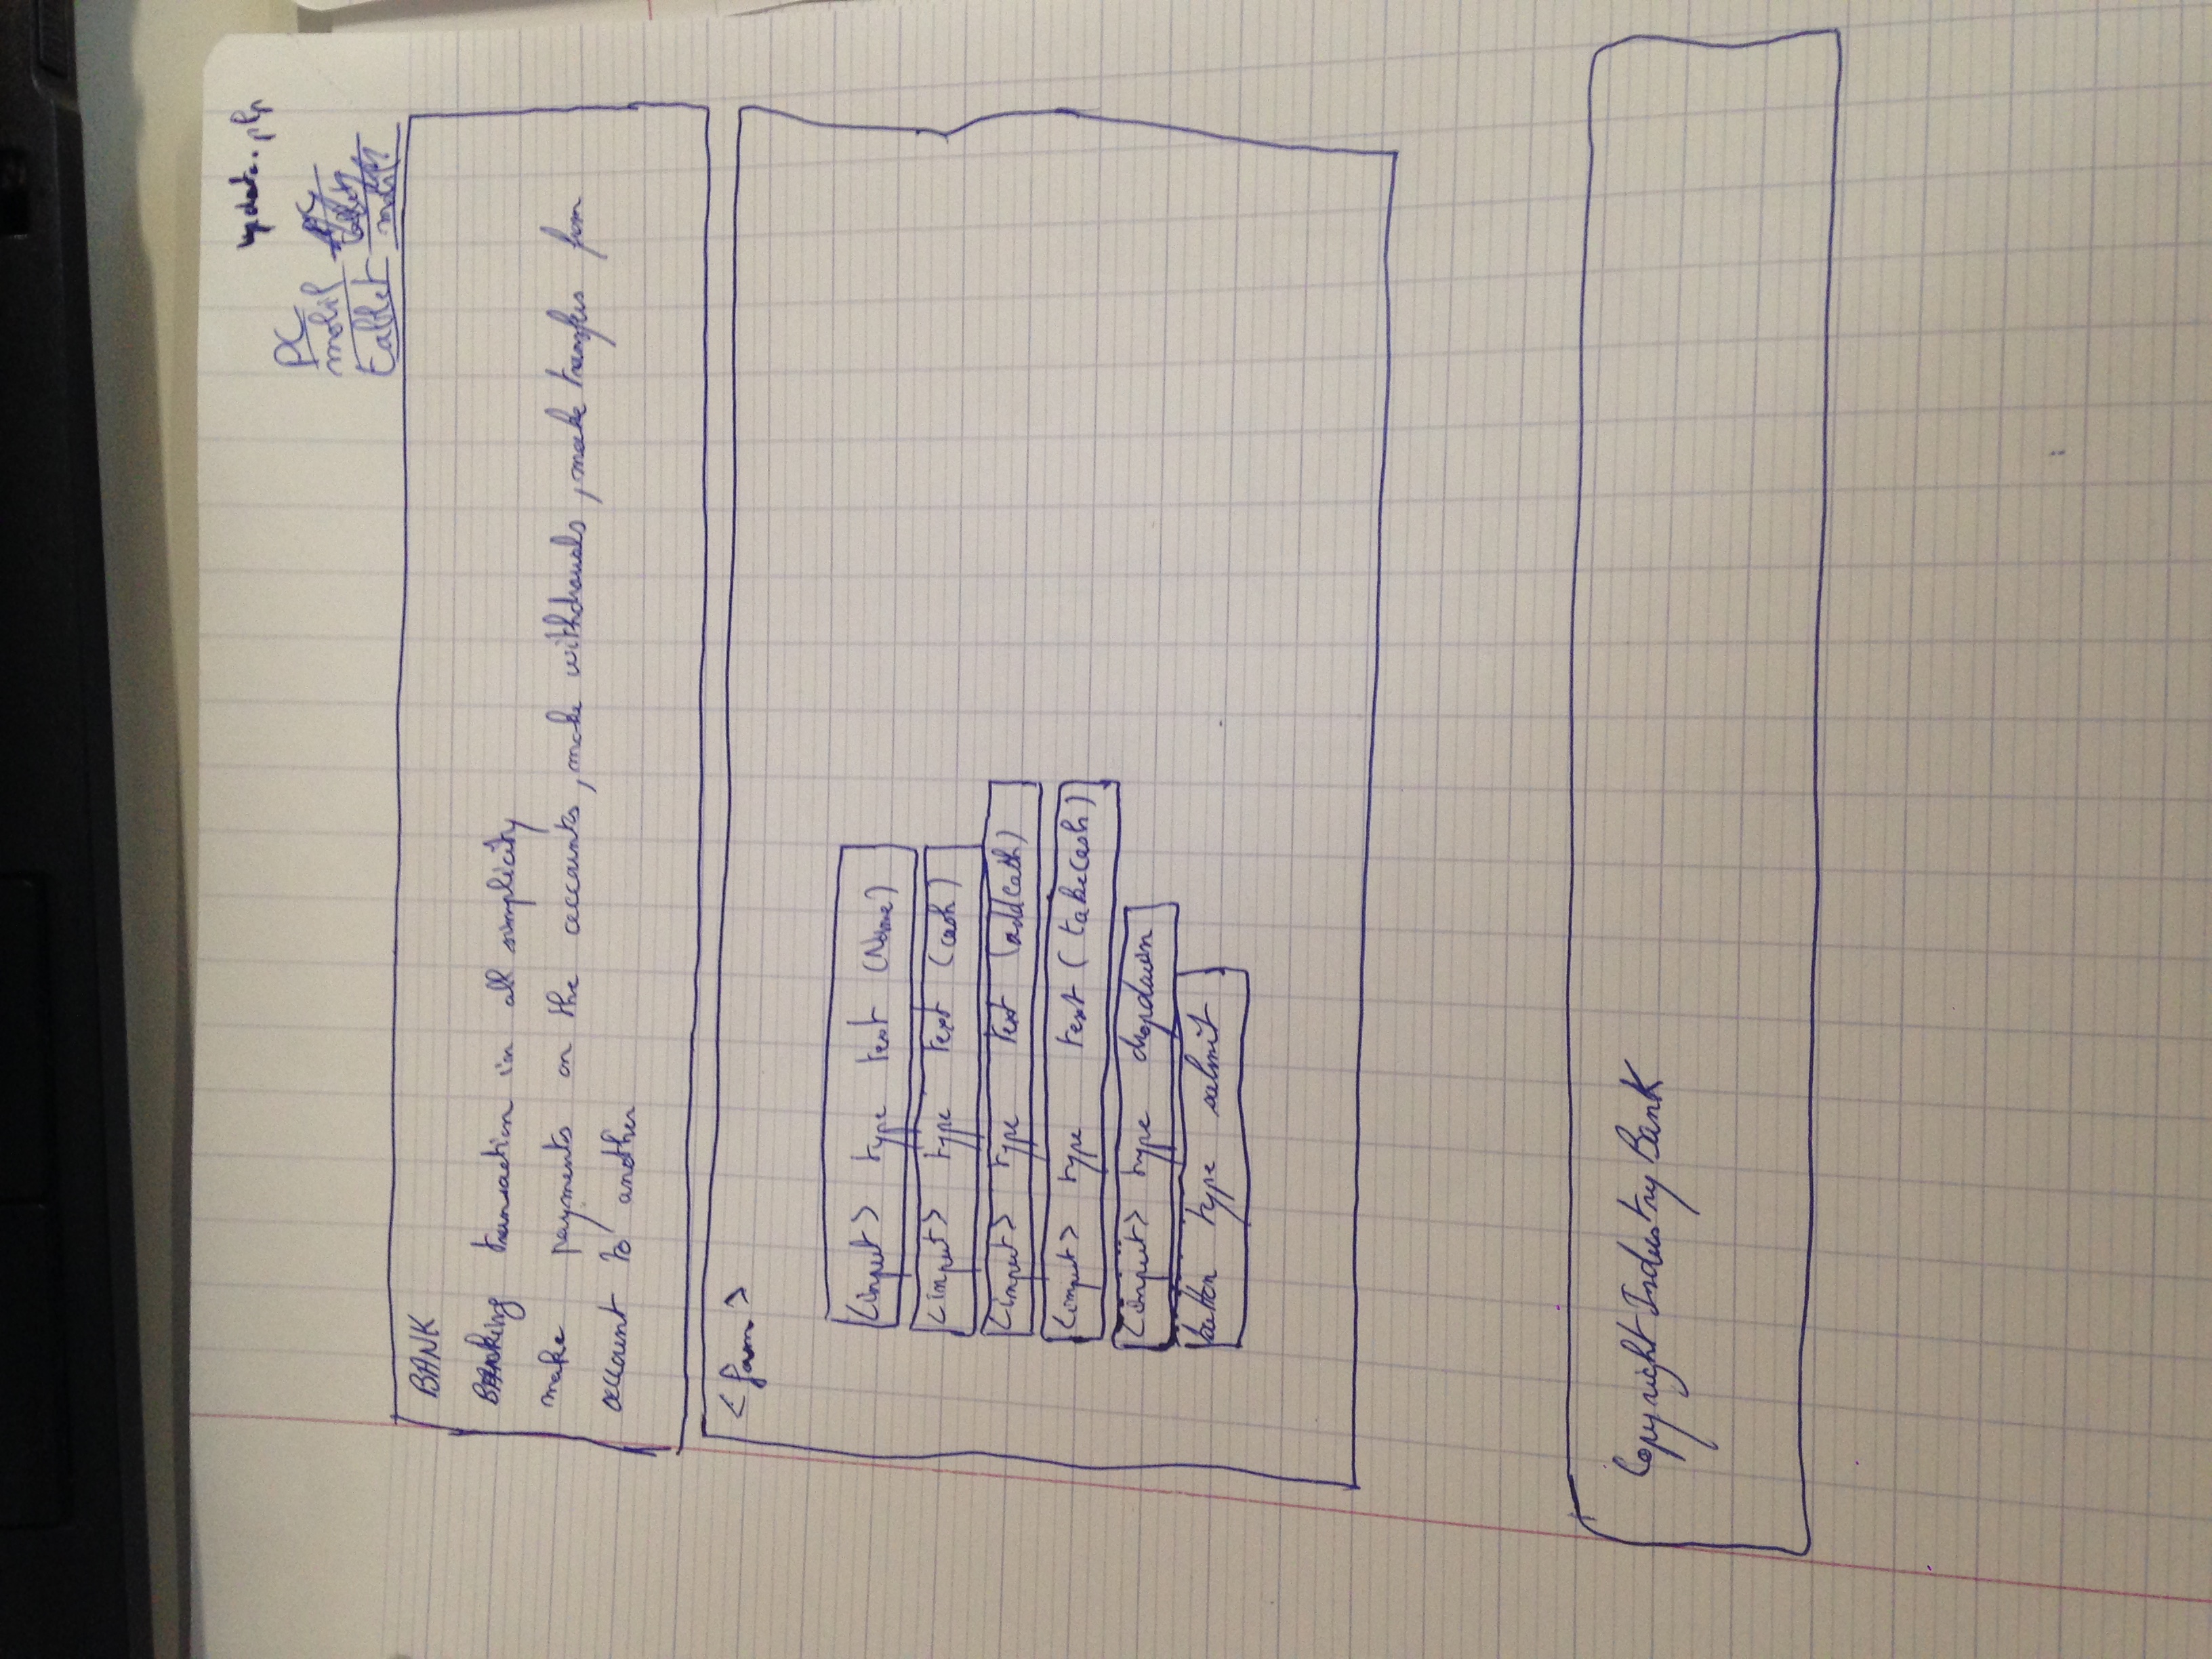 update.php
PC
mobil
tablet
BANK
Banking transaction in all simplicity
make payments on the accounts, make withdrawals, make transfers from
account to another
<form>
<input> type text (Name)
<input> type text (cash)
<input> type text (addcash)
<input> type text (takecash)
<input> type dropdown
button type submit
Copyright Industry Bank